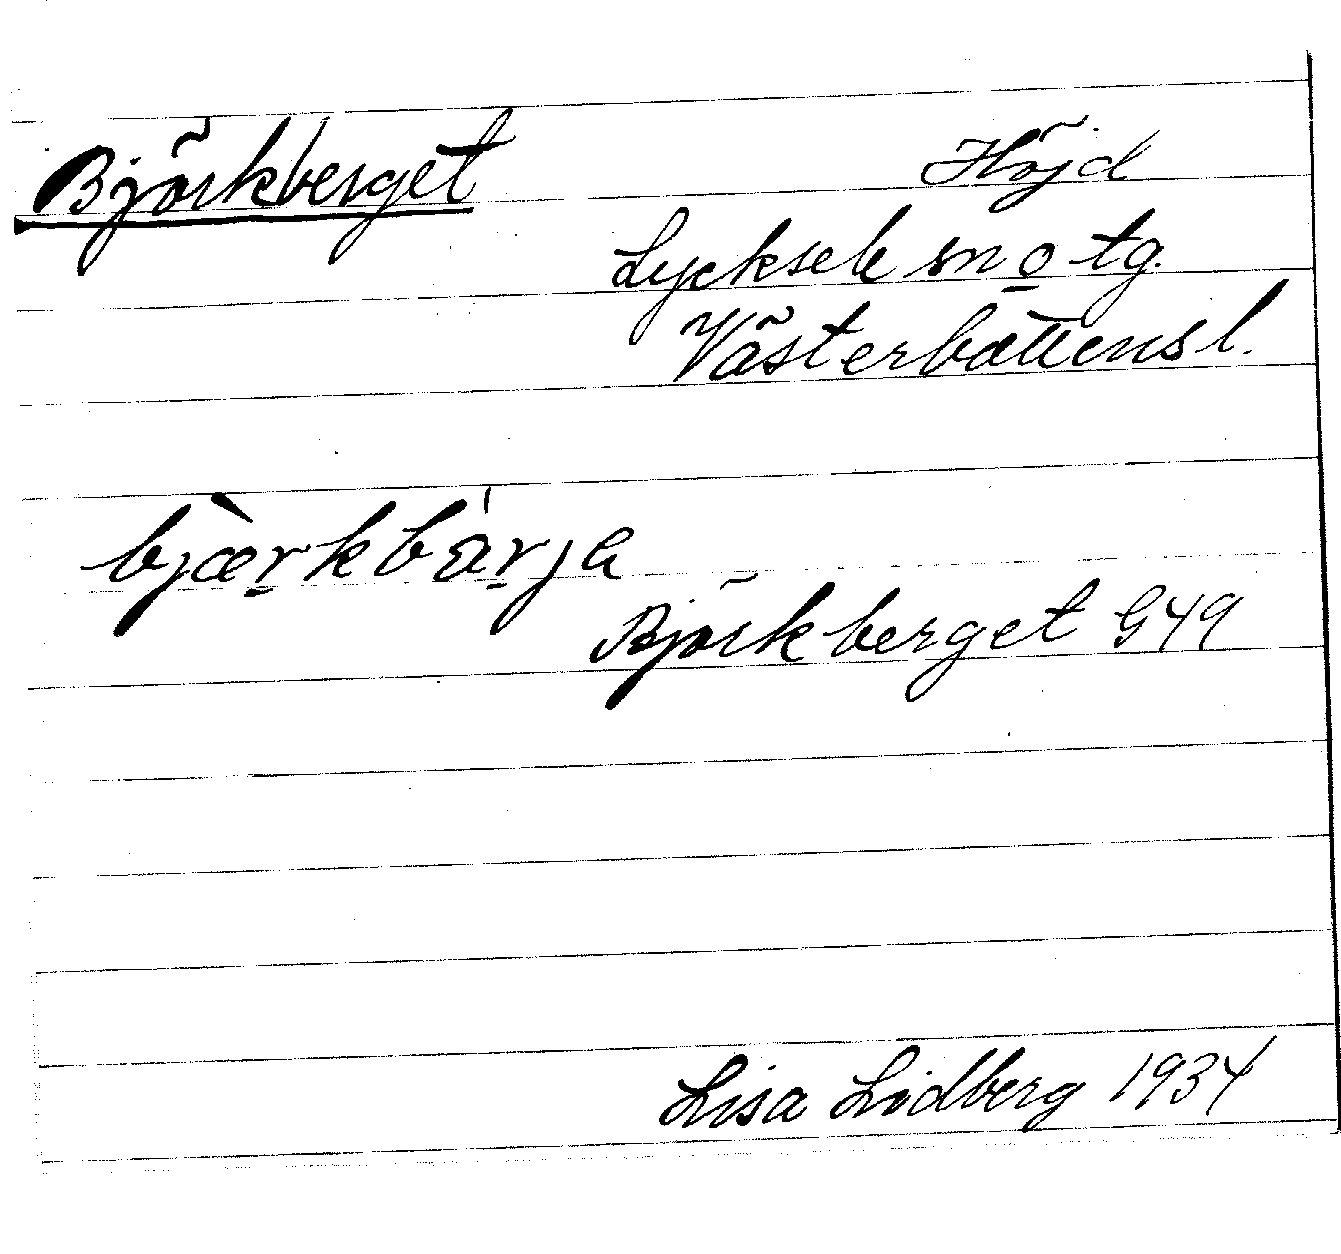 Björkberget Höjd
Lycksele sn o tg.
Västerbottensl.
bjæ̀r̠kbár̠ja
Björkberget G49
Lisa Lidberg 1934